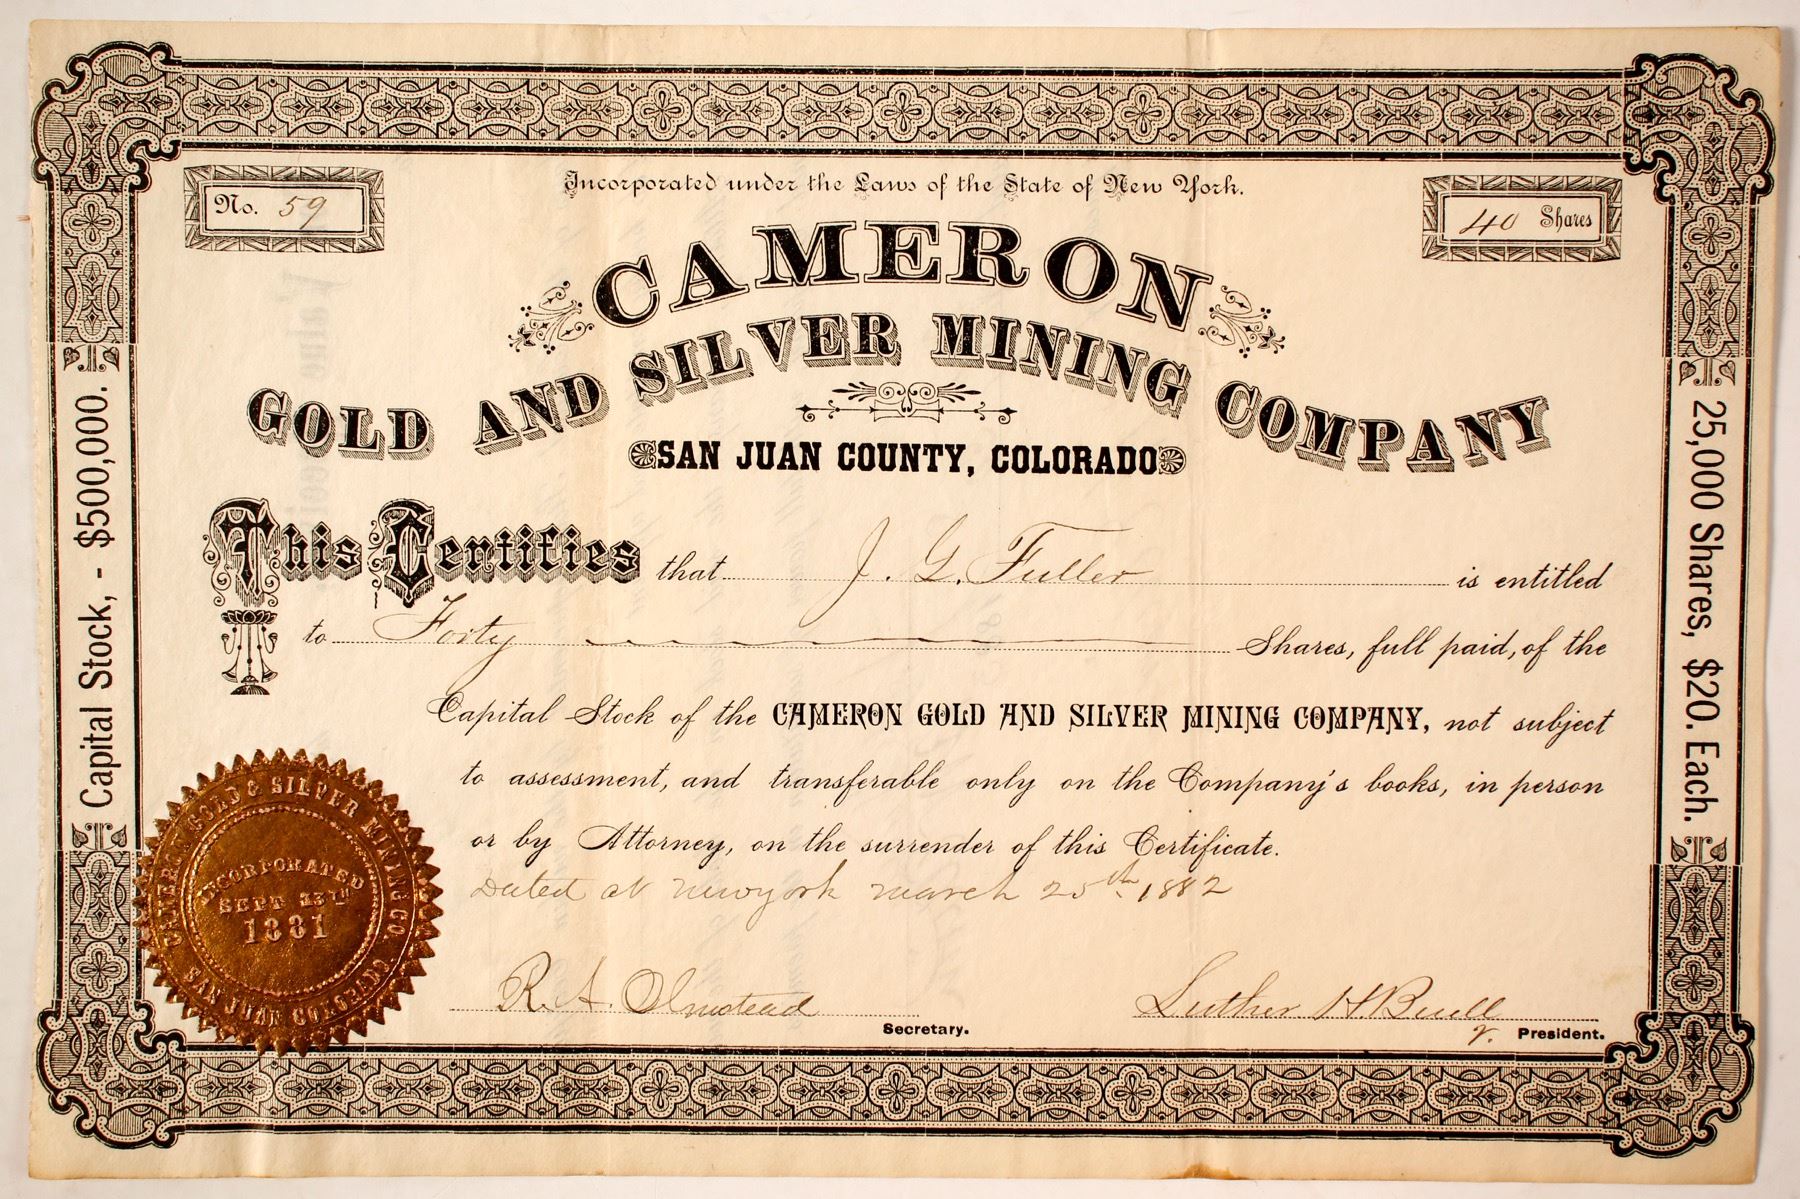 Incorporated under the Laws of the State of New York.
No. 59
40 Shares
CAMERON
GOLD AND SILVER MINING COMPANY
SAN JUAN COUNTY, COLORADO
Capital Stock, - $500,000.
25,000 Shares, $20. Each.
This Certifies that J. G. Fuller is entitled
to Forty Shares, full paid, of the
Capital Stock of the CAMERON GOLD AND SILVER MINING COMPANY, not subject
to assessment, and transferable only on the Company's books, in person
or by Attorney, on the surrender of this Certificate.
Dated at New york march 25th. 1882
CAMERON GOLD & SILVER MINING CO.
INCORPORATED
SEPT 13TH
1881
SAN JUAN COLORADO
R. A. Olmstead
Secretary.
Luther H Buell
V. President.